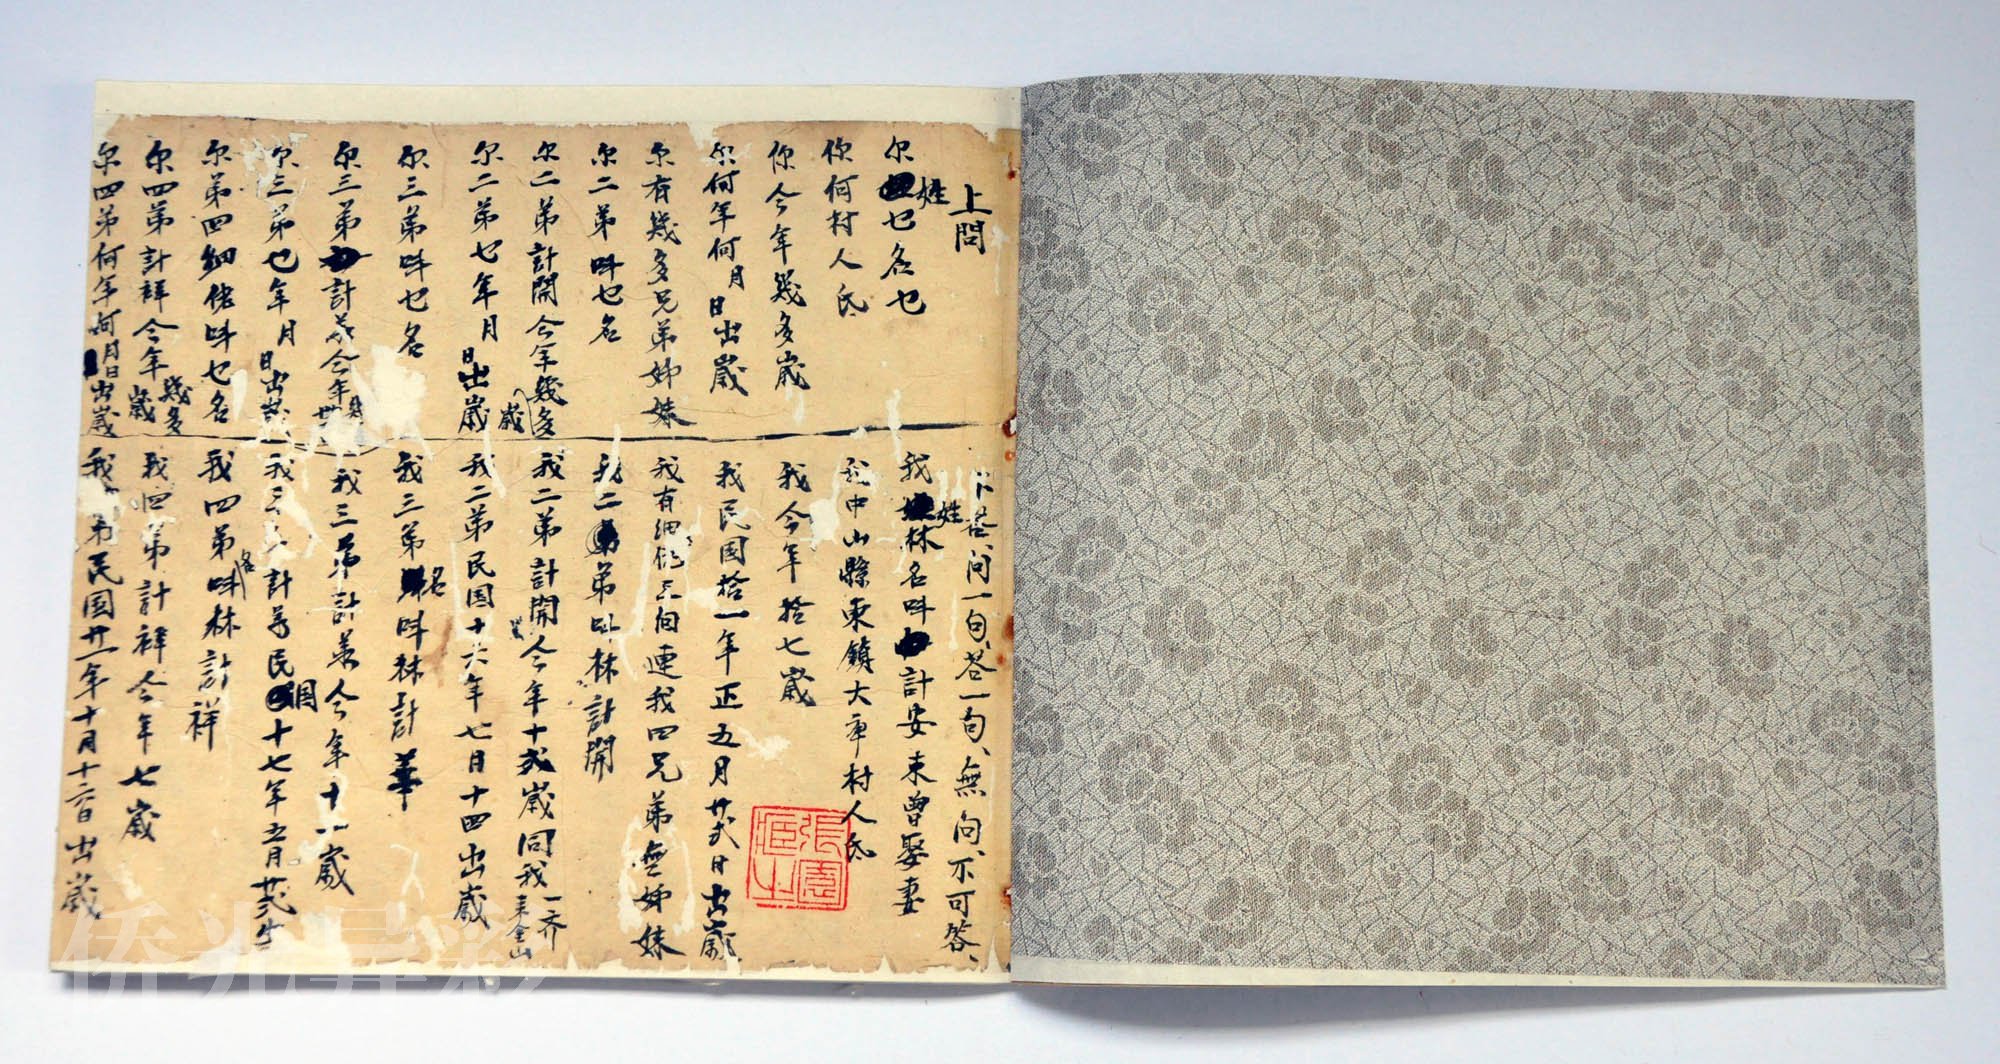 上問
尔姓乜名乜
你何村人氏
你今年幾多歲
尔何年何月日出歲
尔有幾多兄弟姊妹
尔二弟呌乜名
尔二弟計開今年幾多歲
尔二弟七年月日出歲
尔三弟呌乜名
尔三弟計今年歲
尔三弟乜年月日出歲
尔第四細佬呌乜名
尔四弟計祥今年幾多歲
尔四弟何年何月日出歲
下荅、问一句、荅一句、無问、不可答、
我姓林名呌計安未曾娶妻
我中山縣東鎮大車村人氏
我今年拾七歲
我民国拾一年正五月廿弍日出歲
我有細佬三個連我四兄弟無姊妹
我二弟呌林計開
我二弟計開今年十弍歲同我一齐来金山
我二弟民国十六年七月十四出歲
我三弟名呌林計華
我三弟計華今年十一歲
我三計民国十七年五月廿弍生
我四弟名呌林計祥
我四弟計祥今年七歲
我弟民国廿一年十月十六日出歲
張雲
侨光异彩